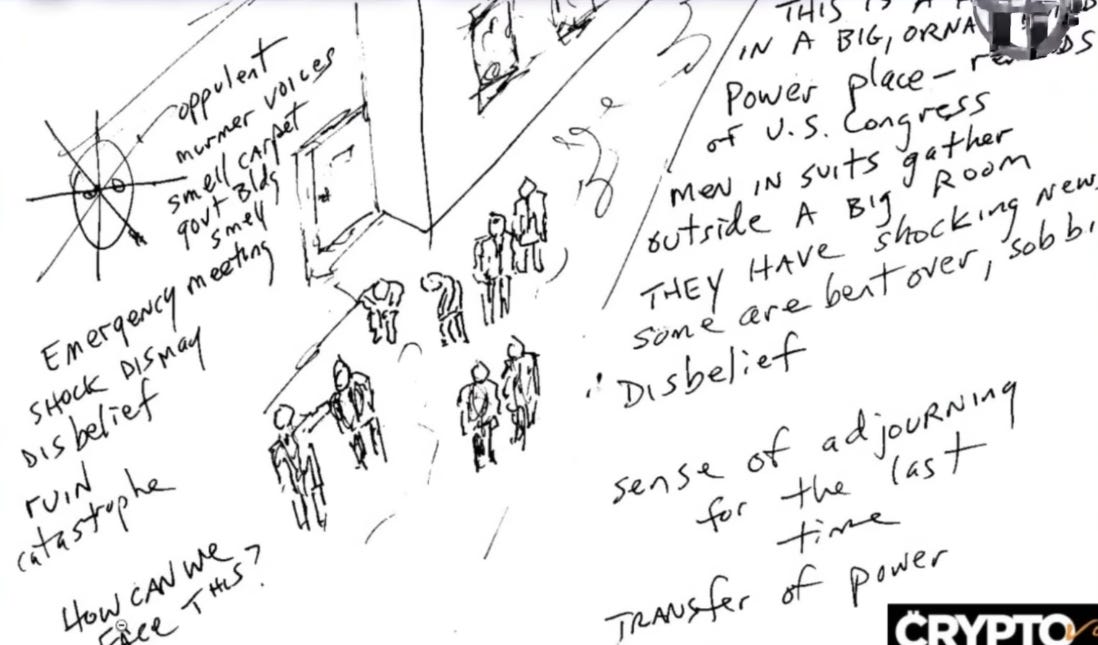 oppulent
murmer voices
smell carpet
govt Bldg
smell
meeting
Emergency
SHOCK DISMAY
DISbelief
ruin
catastrophe
HOW CAN WE
FACE THIS?
THIS IS A
IN A BIG, ORNA
Power place –
of U.S. Congress
MEN IN SUITS gather
outside A BIG ROOM
THEY HAVE shocking news
some are bent over, sobbi
Disbelief
sense of adjourning
for the last
time
TRANSfer of power
CRYPTO